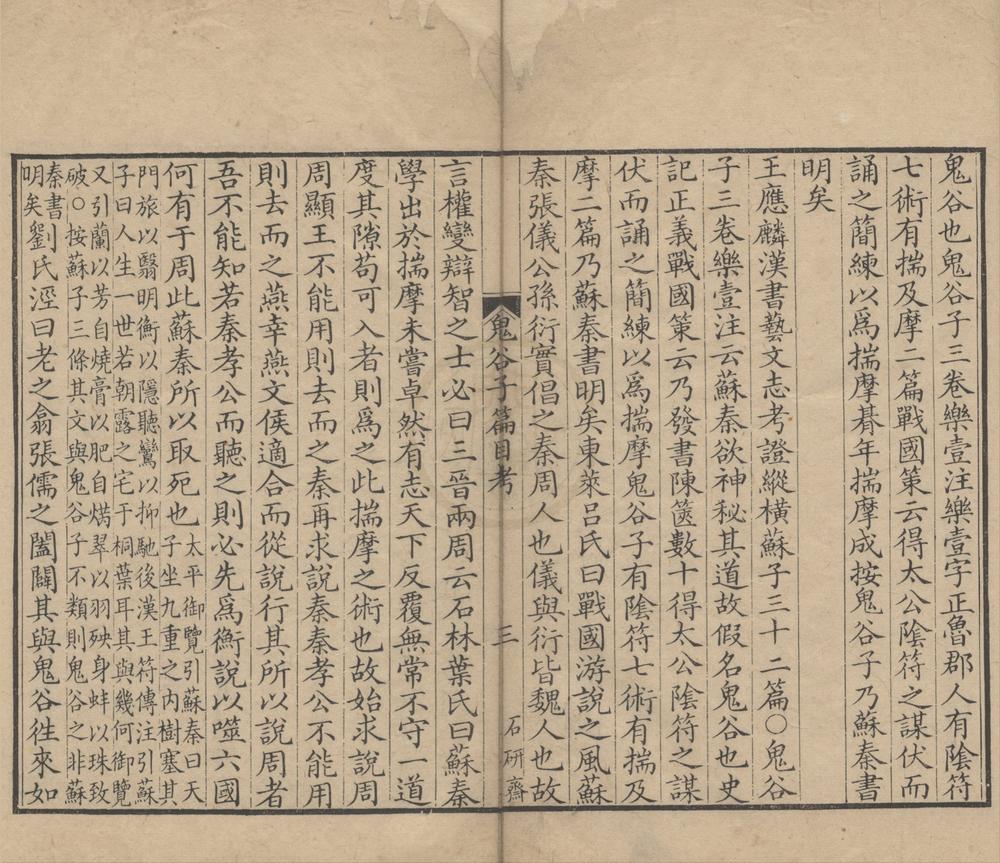 鬼谷也鬼谷子三卷樂壹注樂壹字正魯郡人有陰符
七術有揣及摩二篇戰國策云得太公陰符之謀伏而
誦之簡練以爲揣摩朞年揣摩成按鬼谷子乃蘇秦書
明矣
王應麟漢書藝文志考證縱橫蘇子三十二篇〇鬼谷
子三卷樂壹注云蘇秦欲神秘其道故假名鬼谷也史
記正義戰國策云乃發書陳篋數十得太公陰符之謀
伏而誦之簡練以爲揣摩鬼谷子有陰符七術有揣及
摩二篇乃蘇秦書明矣東萊呂氏曰戰國游說之風蘇
秦張儀公孫衍實倡之秦周人也儀與衍皆魏人也故
鬼谷子篇目考 三 石研齋
言權變辯智之士必曰三晉兩周云石林葉氏曰蘇秦
學出於揣摩未嘗卓然有志天下反覆無常不守一道
度其隙苟可入者則爲之此揣摩之術也故始求說周
周顯王不能用則去而之秦再求說秦秦孝公不能用
則去而之燕幸燕文侯適合而從說行其所以說周者
吾不能知若秦孝公而聽之則必先爲衡說以噬六國
何有于周此蘇秦所以取死也太平御覽引蘇秦曰天
子坐九重之內樹塞其
門旅以翳明衡以隱聽鸞以抑馳後漢王符傳注引蘇
子曰人生一世若朝露之宅于桐葉耳其與幾何御覽
又引蘭以芳自燒膏以肥自焫翠以羽殃身蚌以珠致
破〇按蘇子三條其文與鬼谷子不類則鬼谷之非蘇
秦書
明矣劉氏涇曰老之翕張儒之闔闢其與鬼谷徃來如